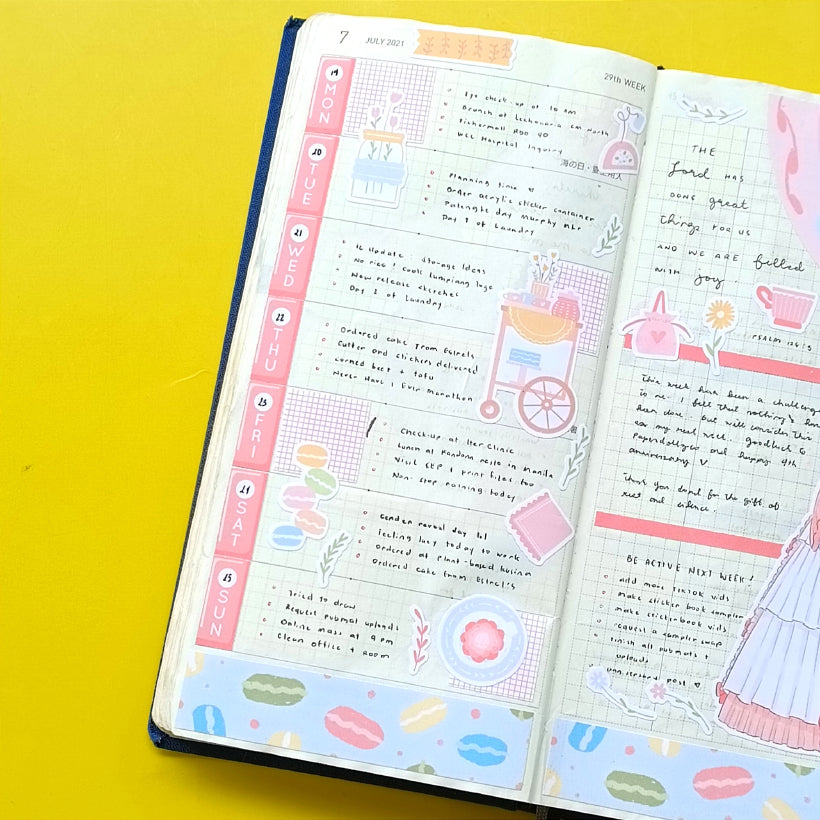 7 JULY 2021
29th WEEK
19 MON
Eye check up at 10 am
Brunch at Lechonaria cm North
Fishermall ADD 90
WCC Hospital Inquiry
海の日・
20 TUE
Planning time
Order acrylic sticker container
Palenghe day Murphy mkt
Day 1 of Laundry
21 WED
IG Update : Storage Ideas
No rice! cook lumpiang
New release sketches
Day 2 of Laundry
22 THU
Ordered cake from Estrels
Cutter and stickers delivered
Corned beef + tofu
Never Have I Ever marathon
23 FRI
Check-up at Iter Clinic
Lunch at Random resto in Manila
Visit SEP & print files too
Non stop raining today
24 SAT
Gender reveal day lol
Feeling lazy today to work
Ordered at plant-based
Ordered cake from Estrel's
25 SUN
Tried to draw
Request pubmat uploads
Online mass at 9 pm
Clean office + room
THE
Lord HAS
DONE great
things FOR US
AND WE ARE filled
WITH joy.
PSALM 126:3
This week have been a
to me. I felt that nothing's
been done. but will consider this
as my rest week. goodluck to
Paperdollzco and happy 4th
anniversary
Thank you Lord for the gift of
rest and silence.
BE ACTIVE NEXT WEEK!
add more tiktok vids
make sticker book sampler
make stickerbook vids
request a sampler swap
finish all pubmats +
uploads